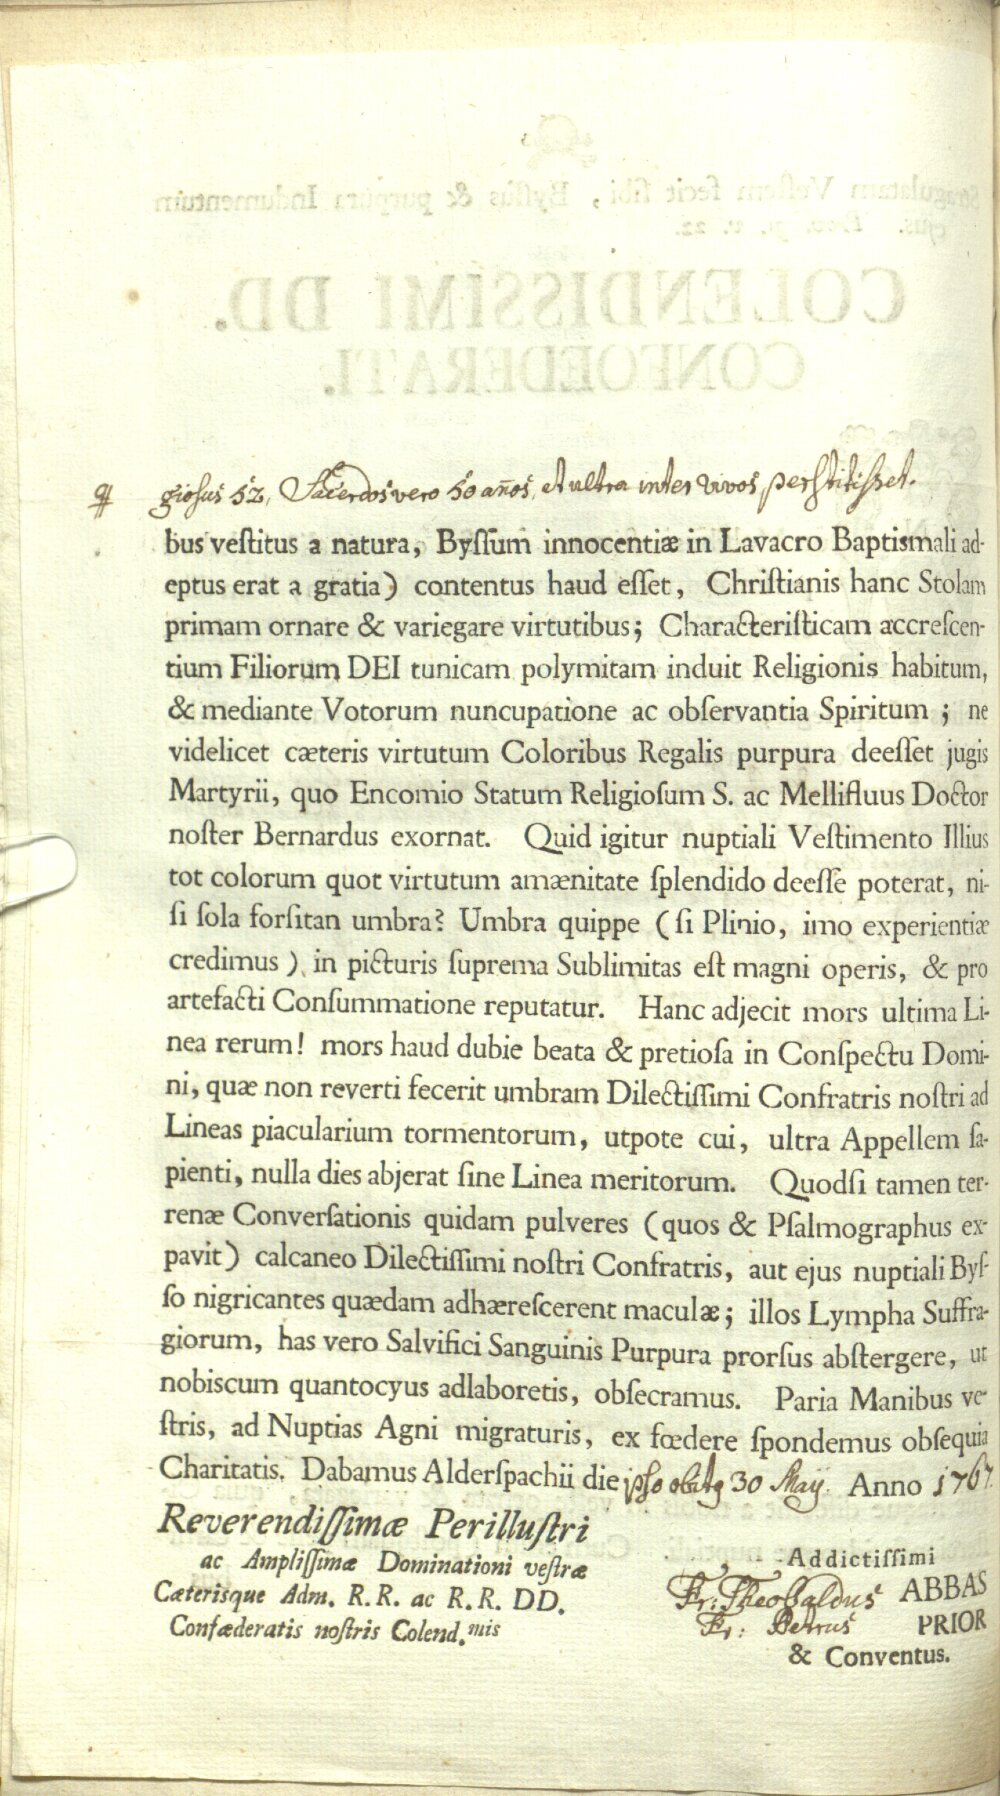 giosus 52, Sacerdos vero 50 años, et ultra inter vivos perstitisset.
bus veſtitus a natura, Byſſum innocentiæ in Lavacro Baptismali ad-
eptus erat a gratia) contentus haud eſſet, Chriſtianis hanc Stolam
primam ornare & variegare virtutibus; Characteriſticam accreſcen-
tium Filiorum DEI tunicam polymitam induit Religionis habitum,
& mediante Votorum nuncupatione ac obſervantia Spiritum; ne
videlicet cæteris virtutum Coloribus Regalis purpura deeſſet jugis
Martyrii, quo Encomio Statum Religioſum S. ac Mellifluus Doctor
noſter Bernardus exornat. Quid igitur nuptiali Veſtimento Illius
tot colorum quot virtutum amænitate ſplendido deeſſe poterat, ni-
ſi ſola forſitan umbra? Umbra quippe (ſi Plinio, imo experientiæ
credimus) in picturis ſuprema Sublimitas eſt magni operis, & pro
artefacti Conſummatione reputatur. Hanc adjecit mors ultima Li-
nea rerum! mors haud dubie beata & pretioſa in Conſpectu Domi-
ni, quæ non reverti fecerit umbram Dilectiſſimi Confratris noſtri ad
Lineas piacularium tormentorum, utpote cui, ultra Appellem ſa-
pienti, nulla dies abjerat ſine Linea meritorum. Quodſi tamen ter-
renæ Converſationis quidam pulveres (quos & Pſalmographus ex-
pavit) calcaneo Dilectiſſimi noſtri Confratris, aut ejus nuptiali Byſ-
ſo nigricantes quædam adhæreſcerent maculæ; illos Lympha Suffra-
giorum, has vero Salvifici Sanguinis Purpura prorſus abſtergere, ut
nobiscum quantocyus adlaboretis, obſecramus. Paria Manibus ve-
ſtris, ad Nuptias Agni migraturis, ex fœdere ſpondemus obſequia
Charitatis. Dabamus Alderſpachii die ipso obitus 30 Maij. Anno 1767.
Reverendiſſimæ Perilluſtri
ac Ampliſſimæ Dominationi veſtræ
Cæterisque Adm. R.R. ac R.R. DD.
Confœderatis noſtris Colend.mis
Addictiſſimi
Fr: Theobaldus ABBAS
Fr: Petrus PRIOR
& Conventus.